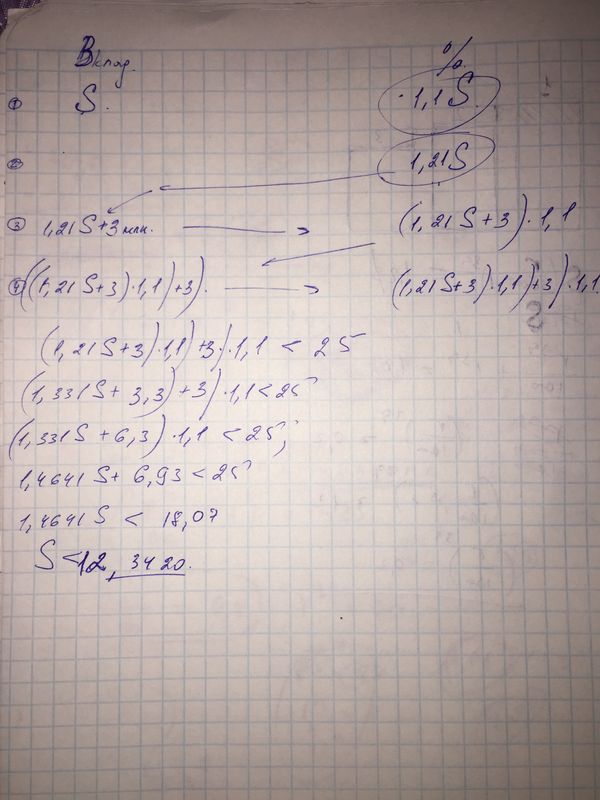 Вклад. %
① S. ·1,1S
② 1,21S
③ 1,21S+3млн. (1,21S+3)·1,1
④ ((1,21S+3)·1,1)+3). (1,21S+3)·1,1)+3)·1,1
(1,21S+3)·1,1)+3)·1,1 < 25
(1,331S+3,3)+3)·1,1<25
(1,331S+6,3)·1,1 <25;
1,4641S+6,93<25
1,4641S < 18,07
S<12,3420.